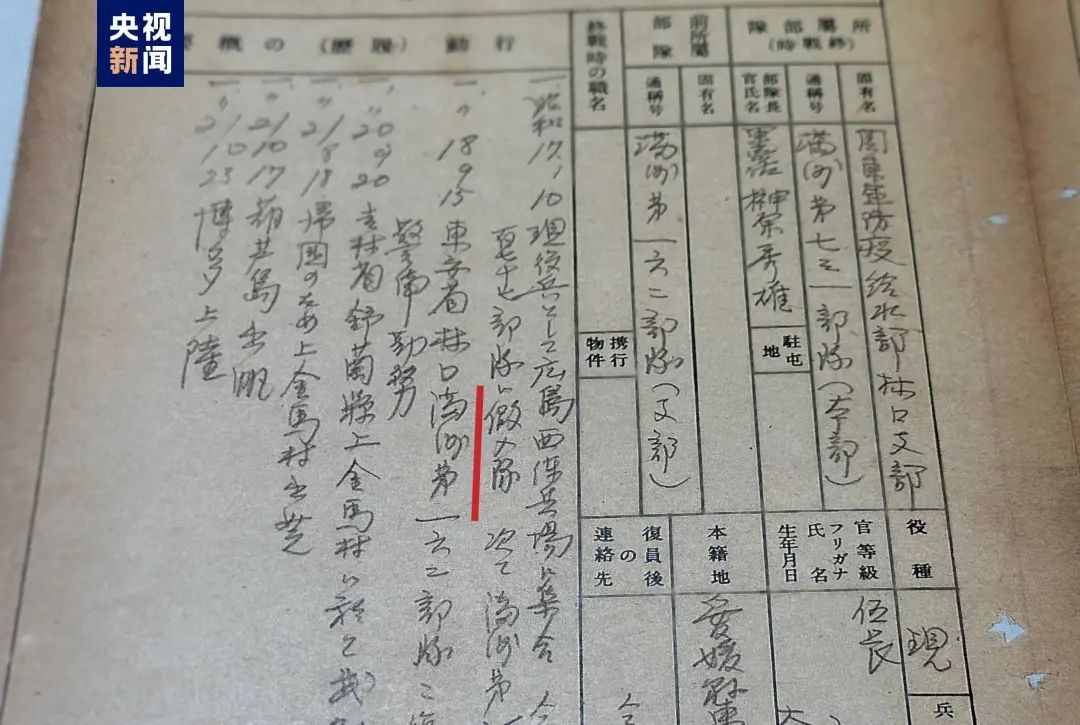 央视
新闻
所屬部隊
(終戰時)
固有名
関東軍防疫給水部林口支部
通稱号
満洲第七三一部隊(本部)
部隊長
官氏名
榊原秀雄
駐屯
地
前所屬
部隊
固有名
通稱号
満洲第一六二部隊(支部)
終戰時の職名
携行
物件
役種
現
兵
官等級
伍長
フリガナ
氏名
生年月日
本籍地
愛媛県
復員後
の
連絡先
行動(履歴)の概要
一、昭和17、10 現役兵として広島西練兵場に集合
部隊に仮入隊 次て満洲第
一、〃18 9 15 東安省林口満洲第一六二部隊
警備勤務
一、〃20 9 20 吉林省舒蘭縣上金馬村に於て
一、〃21 8 18 帰国のため上金馬村出発
一、〃21 10 17 葫芦島出帆
一、〃21 10 23 博多上陸